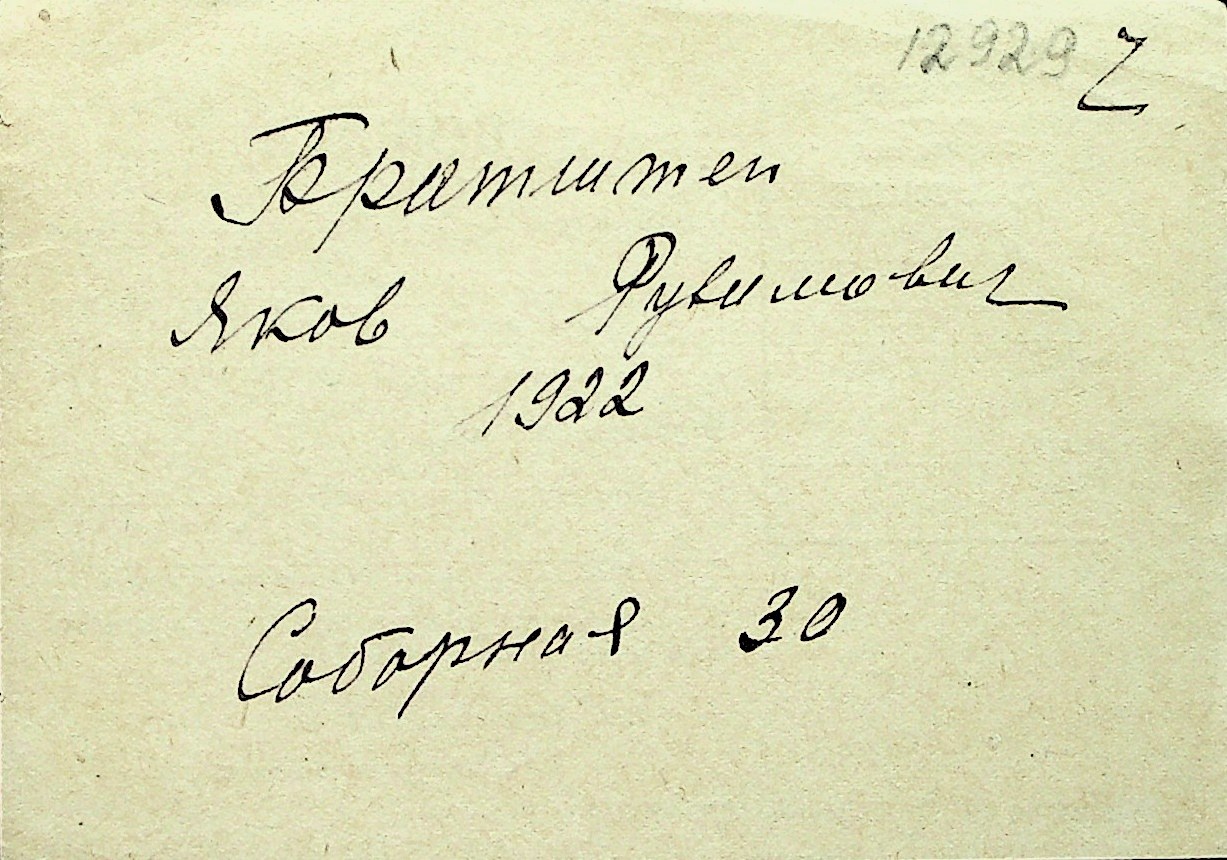 12929 Z
Братштеп
Яков Рувимович
1922
Соборная 30